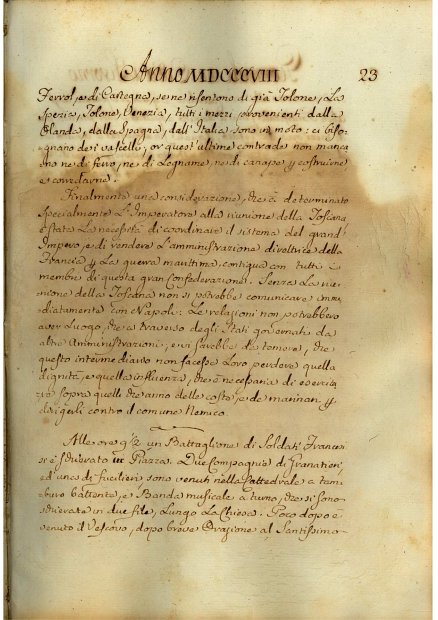 Anno MDCCCVIII 23
Ferrol, e di Cartegna, se ne risentono di già Tolone, La
Spezia, Tolone, Venezia, tutti i mezzi provenienti dalla
Olanda, dalla Spagna, dall' Italia sono in moto: ci biso-
gnano de i vascelli, or quest' ultime contrade non manca
no ne di ferro, ne di Legname, ne di canape p costruirne
e corredarne.
Finalmente una considerazione, che à determinato
specialmente L'Imperatore alla riunione della Toscana
è stata La necessità di coordinare il sistema del grand'
Impero, e di rendere L'amministrazione direttrice della
Francia p La guerra marittima, contigua con tutti i
membri di questa gran Confederazione. Senza La riu-
nione della Toscana non si potrebbe comunicare imme
diatamente con Napoli: Le relazioni non potrebbero
aver Luogo, che a traverso degli Stati governati da
altre Amministrazioni, e vi sarebbe da temere, che
questo intermediario non facesse Loro perdere quella
dignità, e quella influenza, che è necessaria di eserci
tare sopra quelli che anno delle coste, e de marinari p
dirigerli contro il comune Nemico.
Alle ore 9½ un Battaglione di Soldati Francesi
si è schierato in Piazza. Due Compagnie di Granatieri,
ed una di fucilieri sono venuti nella Cattedrale a tam
buro battente, e Banda musicale a turno, che si sono
schierate in due file, Lungo La Chiesa. Poco dopo è
venuto il Vescovo, dopo breve Orazione al Santissimo